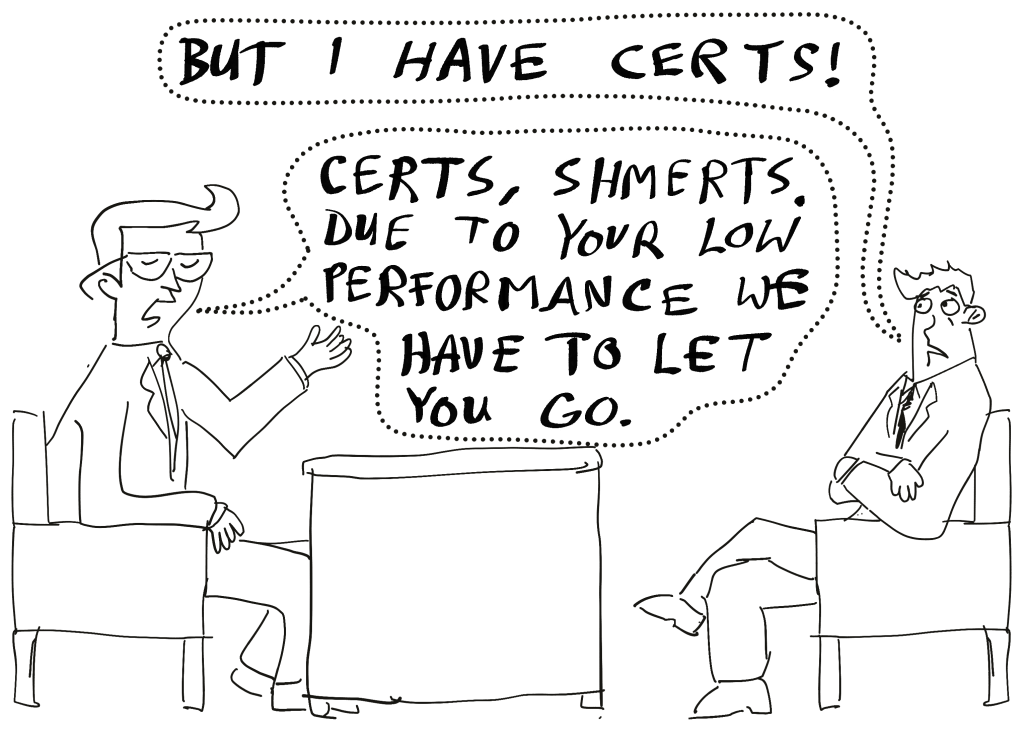 BUT I HAVE CERTS!
CERTS, SHMERTS.
DUE TO YOUR LOW
PERFORMANCE WE
HAVE TO LET
YOU GO.